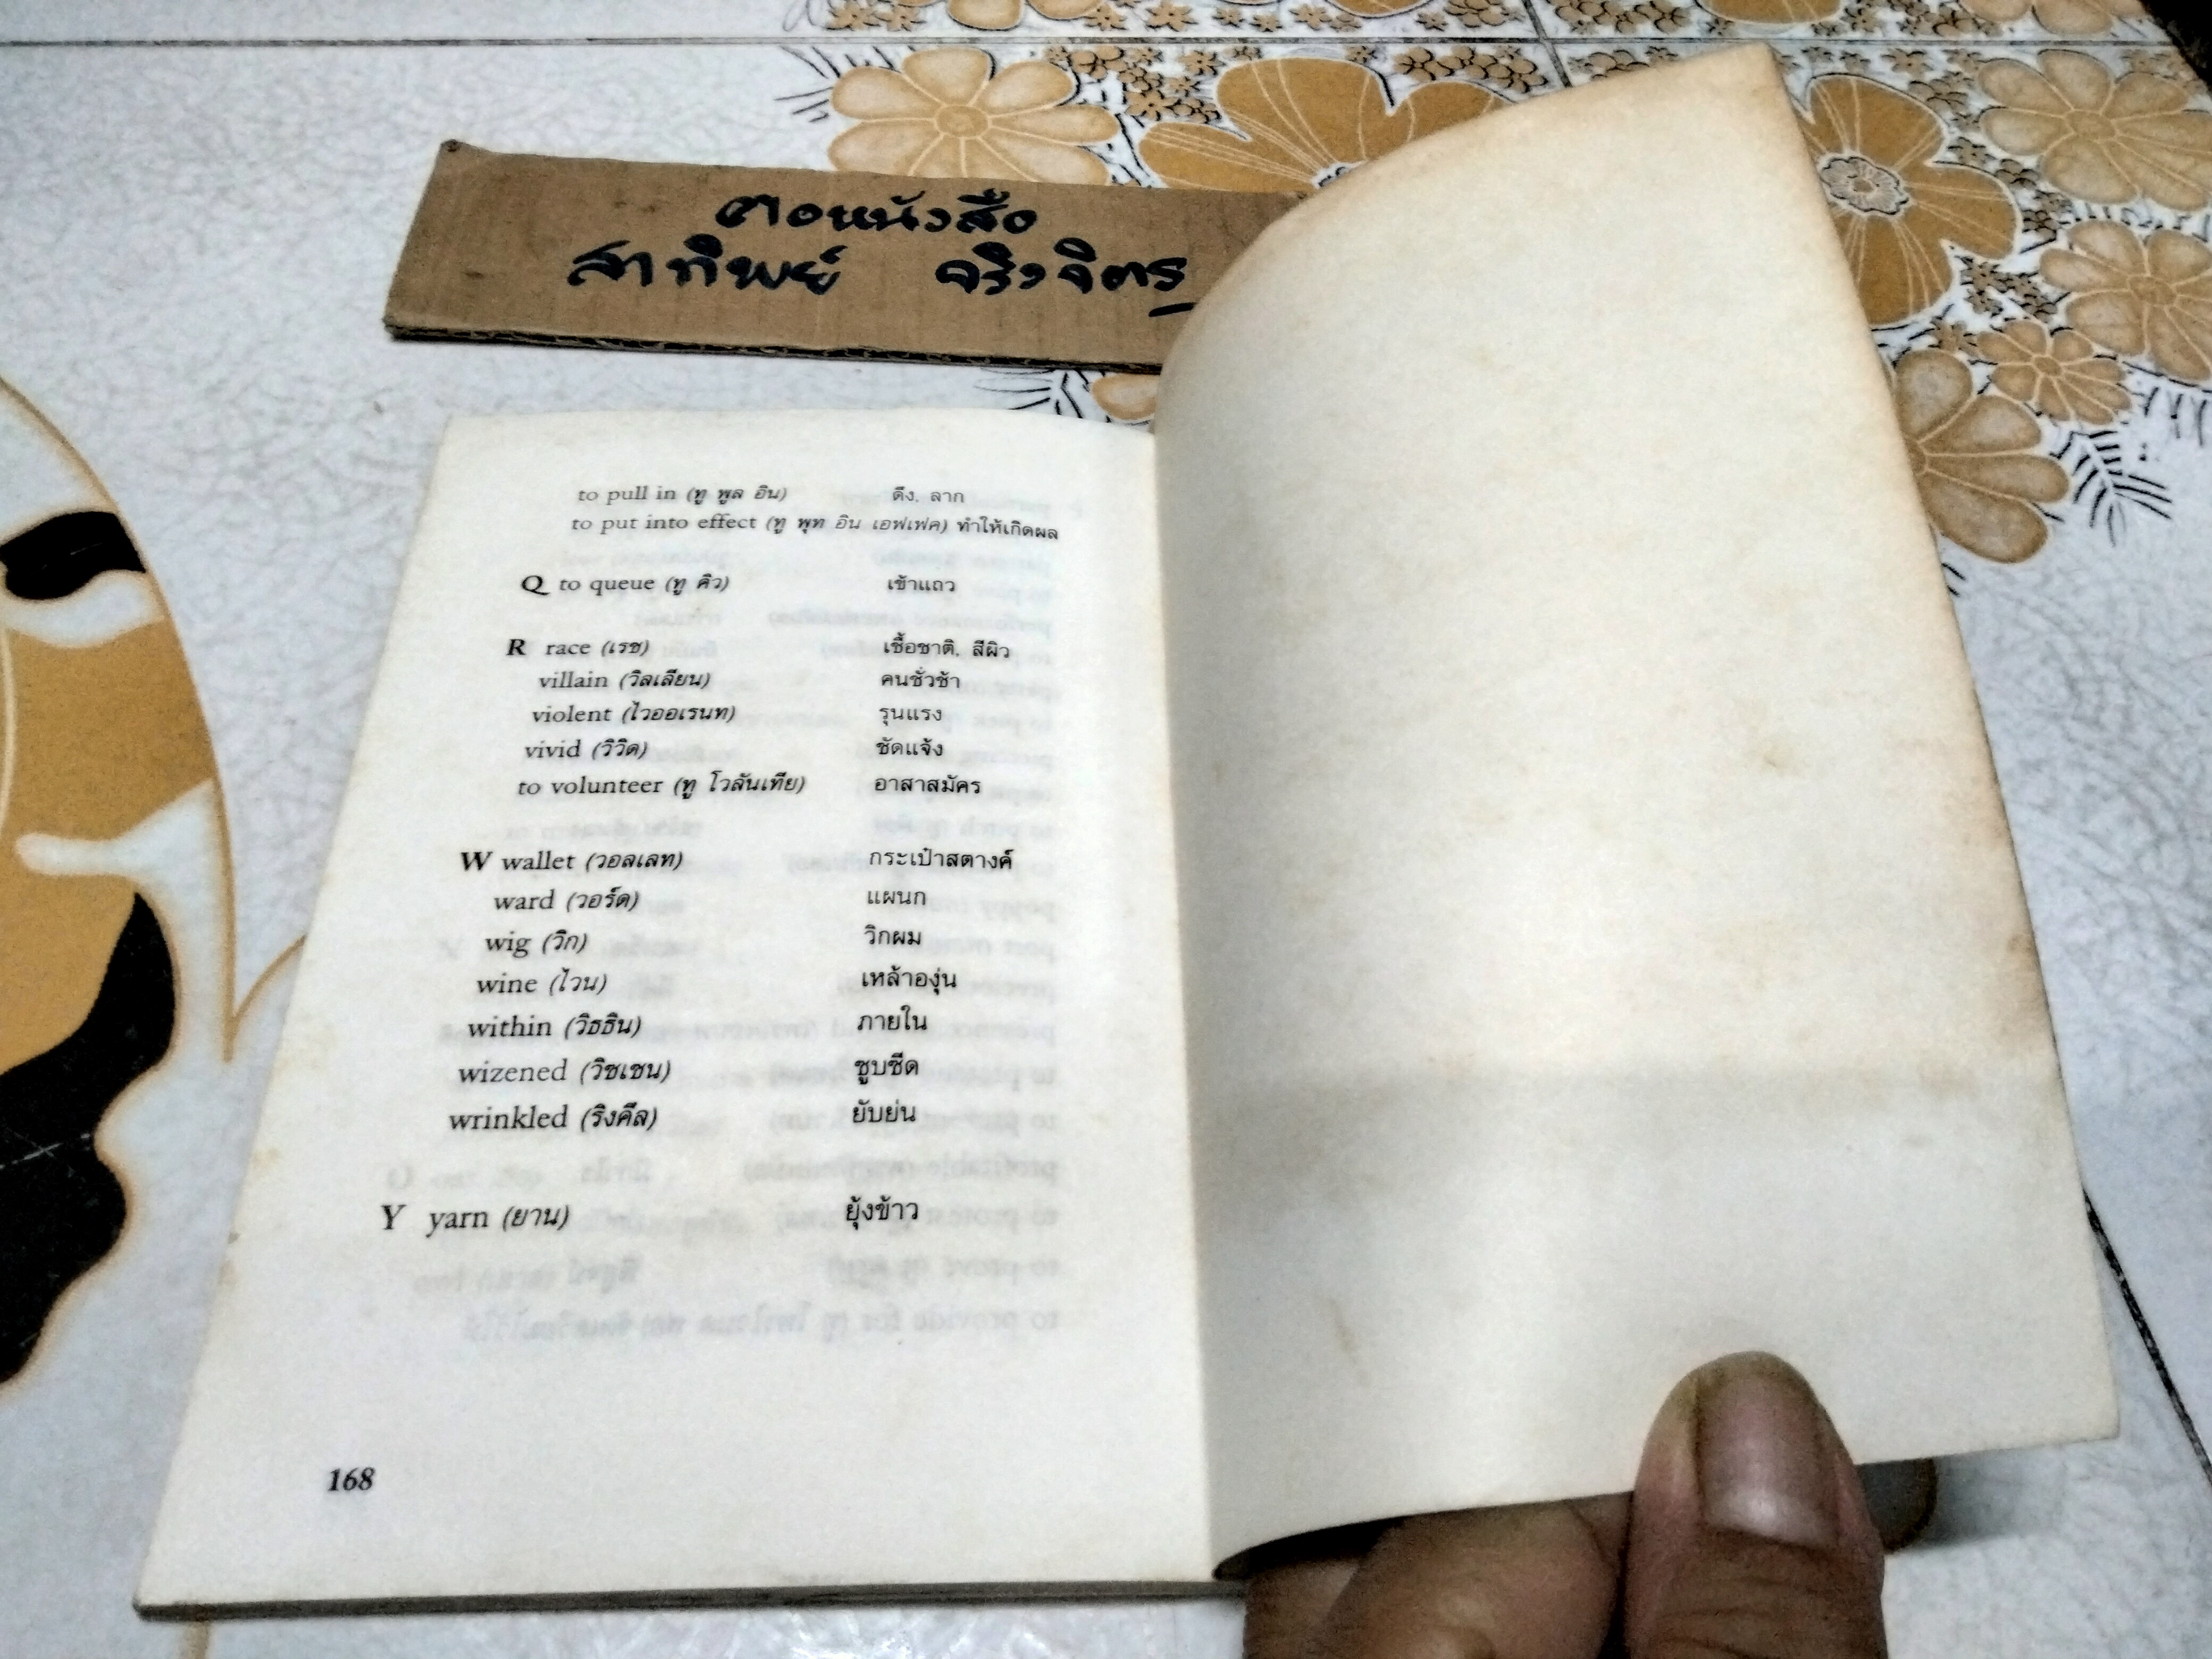 ฅอหนังสือ
สาทิพย์ จริงจิตร
to pull in (ทู พูล อิน) ดึง, ลาก
to put into effect (ทู พุท อิน เอฟเฟค) ทำให้เกิดผล
Q to queue (ทู คิว) เข้าแถว
R race (เรช) เชื้อชาติ, สีผิว
villain (วิลเลียน) คนชั่วช้า
violent (ไวออเรนท) รุนแรง
vivid (วิวิด) ชัดแจ้ง
to volunteer (ทู โวลันเทีย) อาสาสมัคร
W wallet (วอลเลท) กระเป๋าสตางค์
ward (วอร์ด) แผนก
wig (วิก) วิกผม
wine (ไวน) เหล้าองุ่น
within (วิธธิน) ภายใน
wizened (วิชเชน) ซูบซีด
wrinkled (ริงคึล) ยับย่น
Y yarn (ยาน) ยุ้งข้าว
168